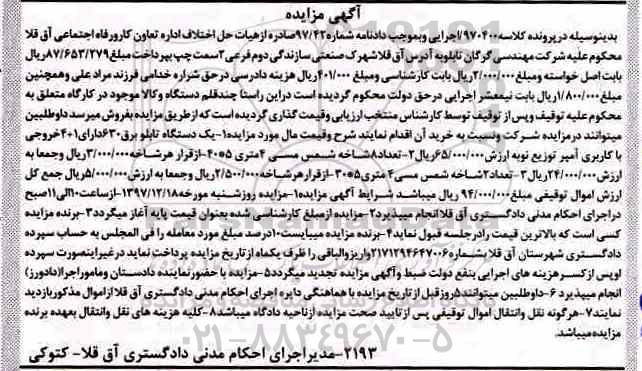 آگهی مزایده
بدینوسیله در پرونده کلاسه ۹۷۰۴۰۰/اجرایی و بموجب دادنامه شماره ۹۷/۴۲ صادره از هیات حل اختلاف اداره تعاون کار و رفاه اجتماعی آق قلا
محکوم علیه شرکت مهندسی گرگان تابلو به آدرس آق قلا شهرک صنعتی سازندگی دوم فرعی ۲ سمت چپ بپرداخت مبلغ ۸۷/۶۵۳/۲۷۹ ریال
بابت اصل خواسته و مبلغ ۲/۰۰۰/۰۰۰ ریال بابت کارشناسی و مبلغ ۴۰۱/۰۰۰ ریال هزینه دادرسی در حق شراره خدامی فرزند مراد علی و همچنین
مبلغ ۱/۸۰۰/۰۰۰ ریال بابت نیمعشر اجرایی در حق دولت محکوم گردیده است در این راستا چند قلم دستگاه و کالا موجود در کارگاه متعلق به
محکوم علیه توقیف و پس از توقیف توسط کارشناس منتخب ارزیابی و قیمت گذاری گردیده است که از طریق مزایده بفروش میرسد داوطلبین
میتوانند در مزایده شرکت و نسبت به خرید آن اقدام نمایند شرح و قیمت مال مورد مزایده ۱-یک دستگاه تابلو برق ۶۳۰ دارای ۴۰۱ خروجی
با کاربری آمپر توزیع نوبه ارزش ۶۵/۰۰۰/۰۰۰ ریال ۲-تعداد ۸ شاخه شمس مسی ۴ متری ۵*۴۰-از قرار هر شاخه ۳/۰۰۰/۰۰۰ ریال و جمعا به
ارزش ۲۴/۰۰۰/۰۰۰ ریال ۳-تعداد ۲ شاخه شمس مسی ۴ متری ۵*۳۰-از قرار هر شاخه ۲/۵۰۰/۰۰۰ ریال و جمعا به ارزش ۵/۰۰۰/۰۰۰ ریال جمع کل
ارزش اموال توقیفی مبلغ ۹۴/۰۰۰/۰۰۰ ریال میباشد شرایط آگهی مزایده ۱-مزایده روز شنبه مورخه ۱۳۹۷/۱۲/۱۸-از ساعت ۱۰ الی ۱۱ صبح
در اجرای احکام مدنی دادگستری آق قلا انجام میپذیرد ۲-مزایده از مبلغ کارشناسی شده بعنوان قیمت پایه آغاز میگردد ۳-برنده مزایده
کسی است که بالاترین قیمت را در جلسه قبول نماید ۴-برنده مزایده میبایست ۱۰ درصد مبلغ مورد معامله را فی المجلس به حساب سپرده
دادگستری شهرستان آق قلا بشماره ۲۱۷۱۲۹۴۶۴۷۰۰۶ واریز و الباقی را ظرف یکماه از تاریخ مزایده پرداخت نماید در غیر اینصورت سپرده
او پس از کسر هزینه های اجرایی بنفع دولت ضبط و آگهی مزایده تجدید میگردد ۵-مزایده با حضور نماینده دادستان و مامور اجرا (دادورز)
انجام میپذیرد ۶-داوطلبین میتوانند ۵ روز قبل از تاریخ مزایده با هماهنگی دایره اجرای احکام مدنی دادگستری آق قلا از اموال مذکور بازدید
نمایند ۷-هرگونه نقل و انتقال اموال توقیفی پس از تایید صحت مزایده از ناحیه دادگاه میباشد ۸-کلیه هزینه های نقل و انتقال بعهده برنده
مزایده میباشد.
۲۱۹۳-مدیر اجرای احکام مدنی دادگستری آق قلا- کتوکی
۰۲۱-۸۸۳۴۹۶۷۰-۵